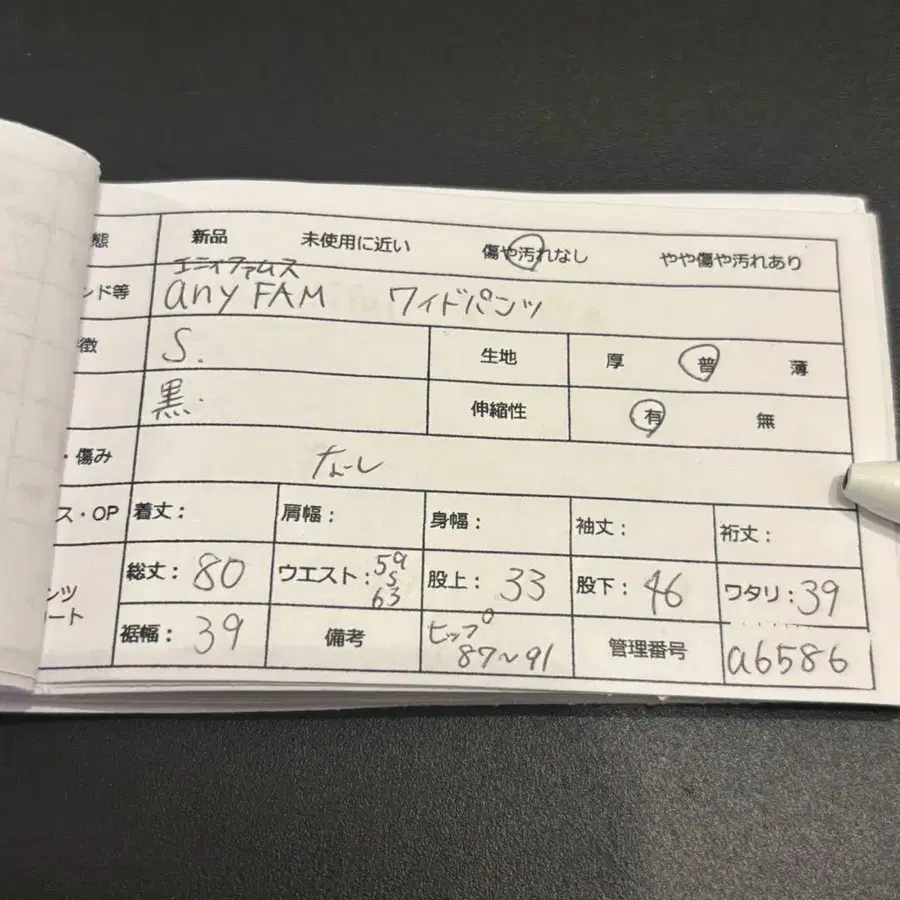 態 新品 未使用に近い 傷や汚れなし やや傷や汚れあり
エニィファムス
ンド等 any FAM ワイドパンツ
徴 S. 生地 厚 普 薄
黒. 伸縮性 有 無
・傷み なし
ス・OP 着丈: 肩幅: 身幅: 袖丈: 裄丈:
ンツ 総丈: 80 ウエスト: 59 S 63 股上: 33 股下: 46 ワタリ: 39
ート 裾幅: 39 備考 ヒップ 87~91 管理番号 a6586